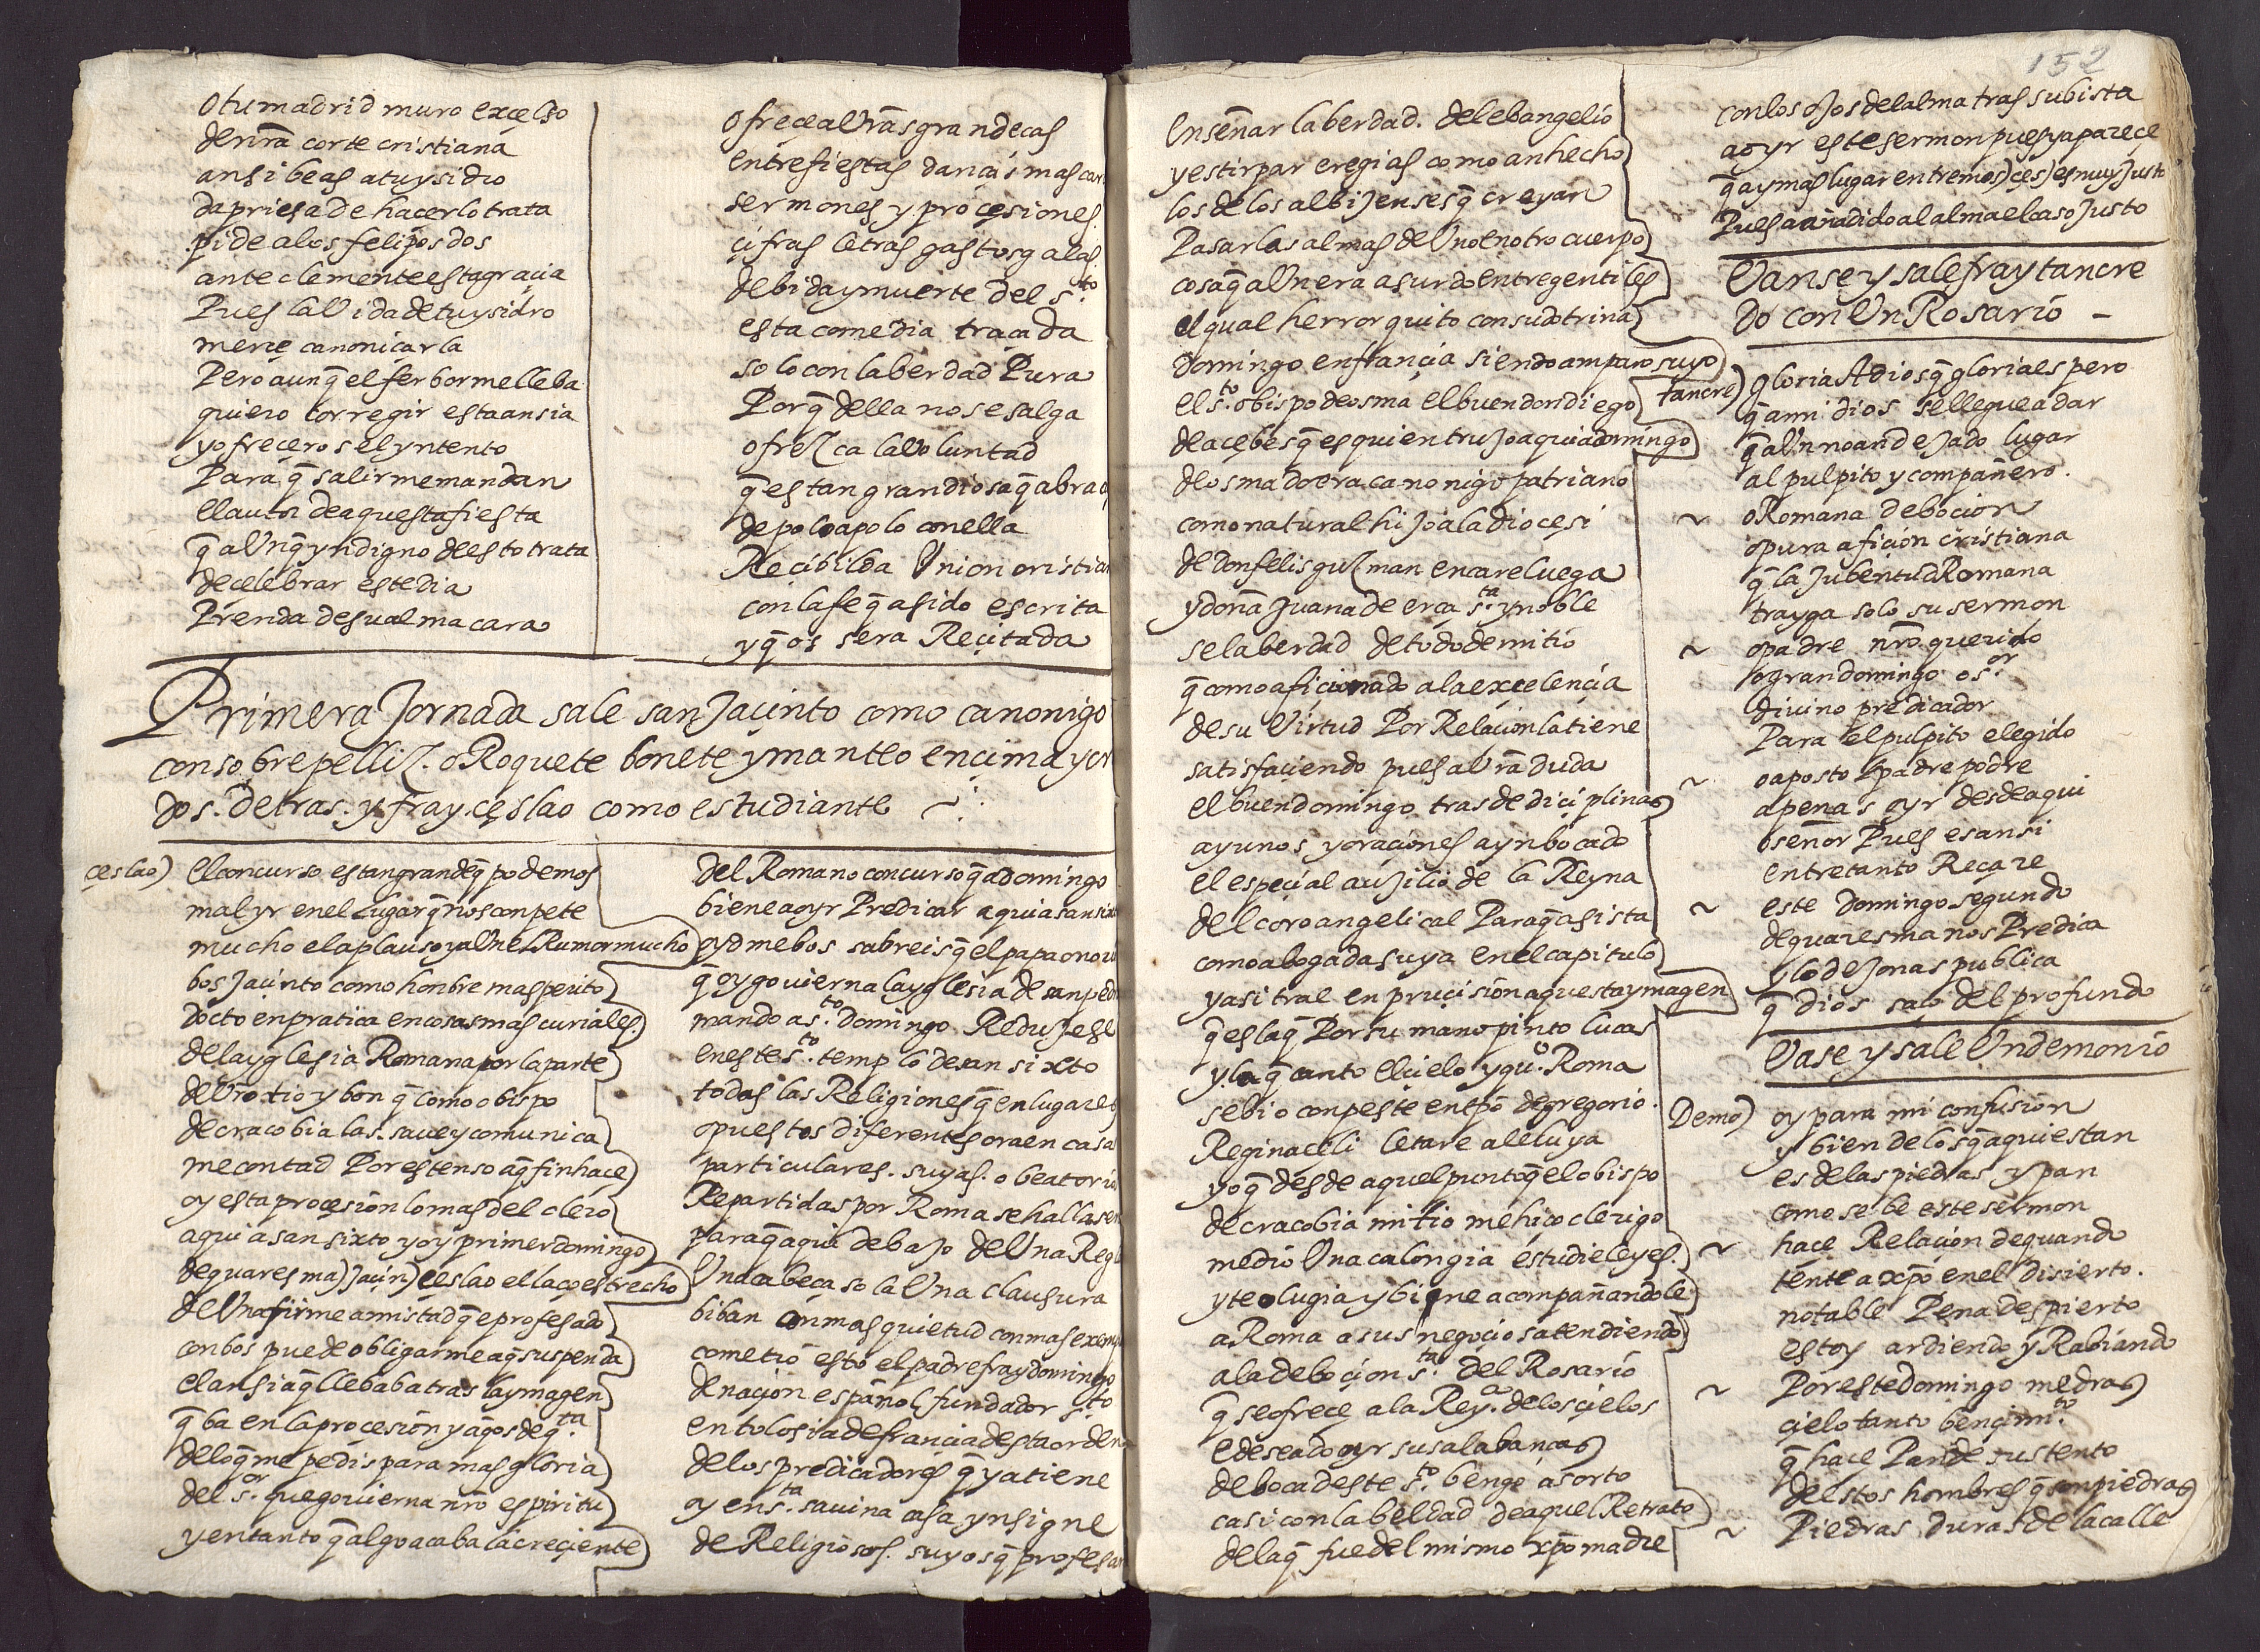 o tu madrid muro excelso
de nrã corte cristiana
ansi beas a tu ysidro
da priesa de hacerlo trata
pide a los felipos dos
ante clemente esta gracia
Pues la Vida de tu ysidro
merçe canoniçarla
Pero aunq̃ el ferbor me lleba
quiero corregir esta ansia
y ofreçeros el yntento
Para q̃ salir me mandan
el autor de aquesta fiesta
q̃ aVnq̃ yndigno de esto trata
de celebrar este dia
Prenda de su alma cara
ofreçe a Vrãs grandeças
entre fiestas danças mas
sermones y proçesiones
çifras letras gastos galas
de bida y muerte del s.to
esta comedia traçada
solo con la berdad Pura
Porq̃ della no se salga
ofrezca la Voluntad
q̃ es tan grandiosa q̃
de polo a polo con ella
Reçibilda Vnion
con la fe q̃ a sido escrita
y q̃ os sera Reçitada
Primera Jornada sale san Jaçinto como canonigo
con sobrepelliz. o Roquete bonete y manteo encima y
dos. detras. y fray çeslao como estudiante
çeslao) el concurso es tan grande q̃ podemos
mal yr en el lugar q̃ nos conpete
mucho el aplauso y aVn el Rumor mucho
bos Jaçinto como honbre mas perito
docto en pratica en cosas mas curiales
de la yglesia Romana por la parte
de Vro tio ybon q̃ como obispo
de cracobia las. saue y comunica
me contad Por estenso a q̃ fin hace
oy esta proçesion lo mas del clero
aqui a san sixto y oy primer domingo
de quaresma) Jaçin) çeslao el laço estrecho
de Vna firme amistad q̃ e profesado
con bos puede obligarme a q̃ suspenda
el ansia q̃ llebaba tras la ymagen
q̃ ba en la proçesion y a q̃ os de q.ta
de lo q̃ me pedis para mas gloria
del s.or que gouierna nrõ espiritu
y en tanto q̃ algo acaba la creçiente
del Romano concurso q̃ a domingo
biene a oyr Predicar aqui a san
oydme bos sabreis q̃ el papa
q̃ oy gouierna la yglesia de san
mando a s.to Domingo Redujese
en este s.to templo de san sixto
todas las Religiones q̃ en lugares
opuestos diferentes ora en casas
particulares. suyas. o
Repartidas por Roma se
para q̃ aqui debajo de Vna
Vna cabeça sola Vna clausura
biban con mas quietud con mas
cometio esto el padre fray domingo
de naçion español fundador s.to
en tolosia de françia desta orden
de los predicadores q̃ ya tiene
oy en s.ta sauina casa ynsigne
de Religiosos. suyos q̃
152
enseñar la berdad. del ebangelio
y estirpar eregias como an hecho
los de los albijenses q̃ creyan
Pasar las almas de Vno en otro cuerpo
cosa q̃ aVn era asurdo entre gentiles
el qual herror quito con su dotrina
domingo en françia siendo amparo suyo
el s.to obispo de osma el buen don diego
de açebes q̃ es quien trujo aqui a domingo
de osma do era canonigo patriano
como natural hijo a la dioçesi
de don felis guzman en careluega
y doña Juana de erça s.ta y noble
se la berdad de todo demitio
q̃ como aficionado a la exçelençia
de su Virtud Por Relaçion la tiene
satisfaçiendo pues a Vrã duda
el buen domingo tras de diçiplinas
ayunos y oraçiones a ynbocado
el espeçial aujilio de la Reyna
del coro angelical Para q̃ asista
como abogada suya en el capitulo
y asi trae en pruçision aquesta ymagen
q̃ es la q̃ Por su mano pinto lucas
y la q̃ canto el cielo y qu.o Roma
se bio con peste en tpõ de gregorio.
Regina celi letare aleluya
yo q̃ desde aquel punto q̃ el obispo
de cracobia mi tio me hiço clerigo
me dio Vna calongia estudie leyes.
y teolugia y bine acompañandole
a Roma a sus negoçios atendiendo
a la deboçion s.ta del Rosario
q̃ se ofreçe a la Rey.a de los çielos
e deseado oyr sus alabanças
de boca deste s.to bengo asorto
casi con la beldad de aquel Retrato
de la q̃ fue del mismo xpõ madre
con los ojos del alma tras su bista
a oyr este sermon pues ya pareçe
q̃ ay mas lugar entremos) çes) es muy justo
Pues a añadido al alma el caso Justo
Vanse y sale fray tancre
do con Vn Rosario –
tancre) gloria A dios q̃ gloria espero
q̃ a mi dios se llegue a dar
q̃ aVn no an dejado lugar
al pulpito y compañero.
~ o Romana debocion
o pura afiçion cristiana
q̃ la Jubentud Romana
trayga solo su sermon
~ o padre nrõ querido
o gran domingo o s.or
diuino predicador
Para el pulpito elegido
~ o aposto padre podre
apenas oyr desde aqui
o señor Pues es ansi
entretanto Reçare
~ este domingo segundo
de quaresma nos Predica
y lo de Jonas publica
q̃ dios saco del profundo
Vase y sale Vn demonio
Demo) oy para mi confusion
y bien de los q̃ aqui estan
es de las piedras y pan
como se be este sermon
~ hace Relaçion de quando
tente a xpõ en el disierto.
notable Pena despierto
estoy ardiendo y Rabiando
~ Por este domingo medras
çielo tanto bençim.to
q̃ hace Pan de sustento
destos hombres q̃ son piedras
~ Piedras duras de la calle